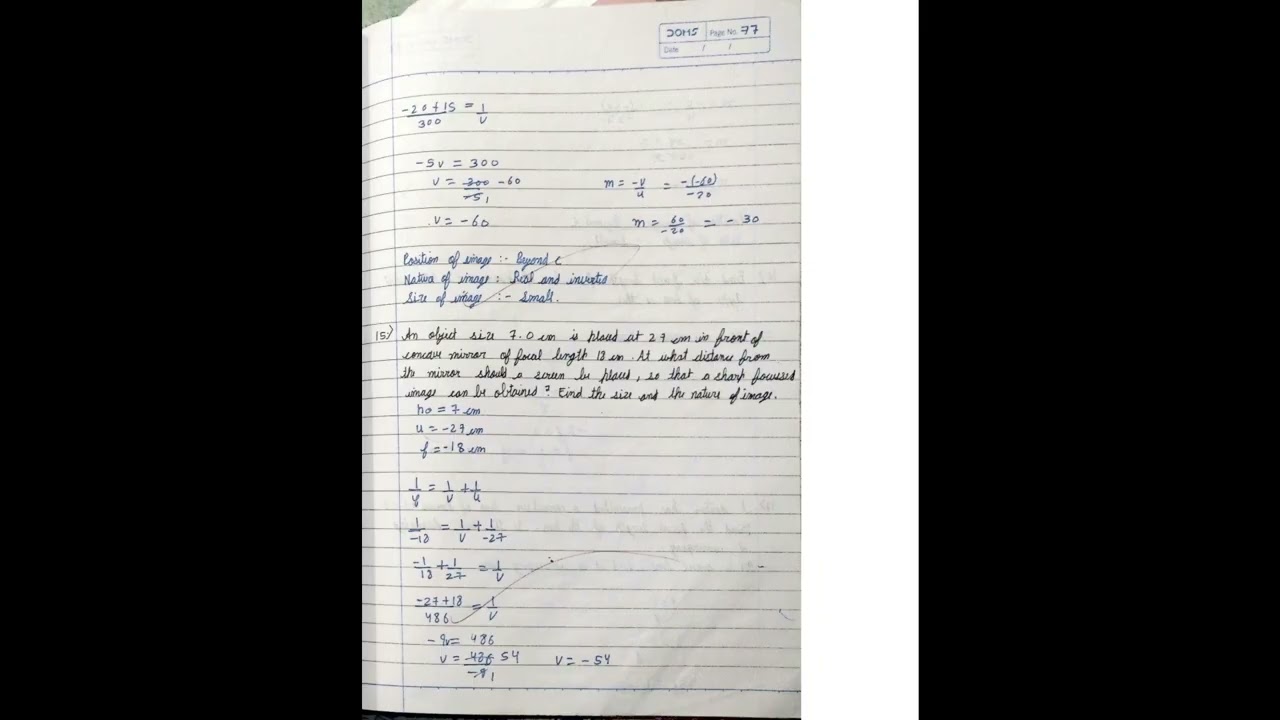 DOMS Page No. 77
Date / /
-20+15/300 = 1/v
-5v = 300
v = 300/-5 -60 m = -v/u = -(-60)/-20
v = -60 m = 60/-20 = - 30
Position of image :- Beyond C
Nature of image : Real and inverted
Size of image :- Small.
15.) An object size 7.0 cm is placed at 27 cm in front of
concave mirror of focal length 18 cm. At what distance from
the mirror should a screen be placed, so that a sharp focused
image can be obtained? Find the size and the nature of image.
ho = 7 cm
u = -27 cm
f = -18 cm
1/f = 1/v + 1/u
1/-18 = 1/v + 1/-27
-1/18 + 1/27 = 1/v
-27+18/486 = 1/v
-9v = 486
v = 486/-9 54 v = -54